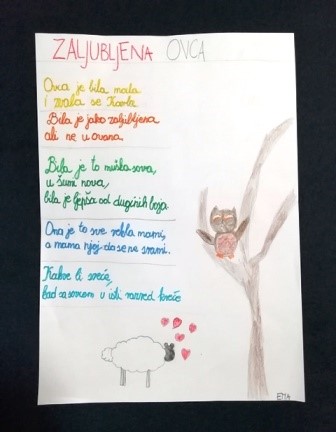 ZALJUBLJENA OVCA
Ovca je bila mala
i zvala se Karla.
Bila je jako zaljubljena
ali ne u ovana.
Bila je to muška sova,
u šumi nova,
bila je ljepša od duginih boja.
Ona je to sve rekla mami,
a mama njoj da se ne srami.
Kakve li sreće,
kad sa sovom u isti razred kreće
EMA